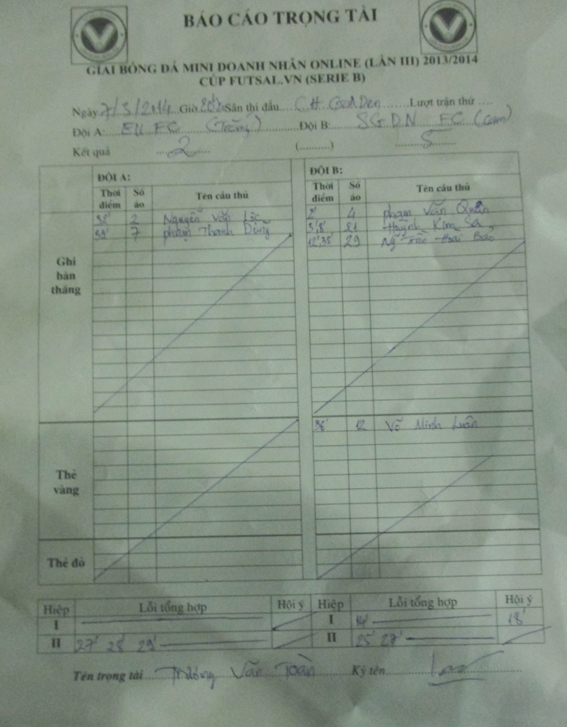 BÁO CÁO TRỌNG TÀI
GIẢI BÓNG ĐÁ MINI DOANH NHÂN ONLINE (LẦN III) 2013/2014
CÚP FUTSAL.VN (SERIE B)
Ngày 7/3/2014 Giờ Sân thi đấu C.H. Lượt trận thứ
Đội A: EN FC (Trắng) Đội B: SGDN FC (Cam)
Kết quả 2 (..........) 5
ĐỘI A: ĐỘI B:
Thời điểm Số áo Tên cầu thủ Thời điểm Số áo Tên cầu thủ
Ghi bàn thắng
2 Nguyễn Văn Lộc 2' 4 Phạm Văn Quân
7 Phạm Thanh Dũng 21 Huỳnh Kim
29
Thẻ vàng
38' 12 Võ Minh Luân
Thẻ đỏ
Hiệp Lỗi tổng hợp Hội ý Hiệp Lỗi tổng hợp Hội ý
I I 14' 18'
II 27' 28' 29' II 25' 28'
Tên trọng tài Trương Văn Toàn Ký tên